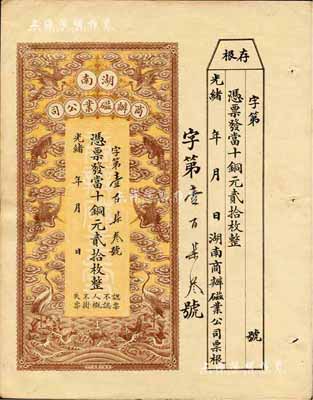 湖南
商辦磁業公司
字第壹百柒叁號
憑票發當十銅元貳拾枚整
光緒 年 月 日
認票不認人
失票概不掛
字第壹百柒叁號
存根
字第 號
憑票發當十銅元貳拾枚整
光緒 年 月 日湖南商辦磁業公司票根